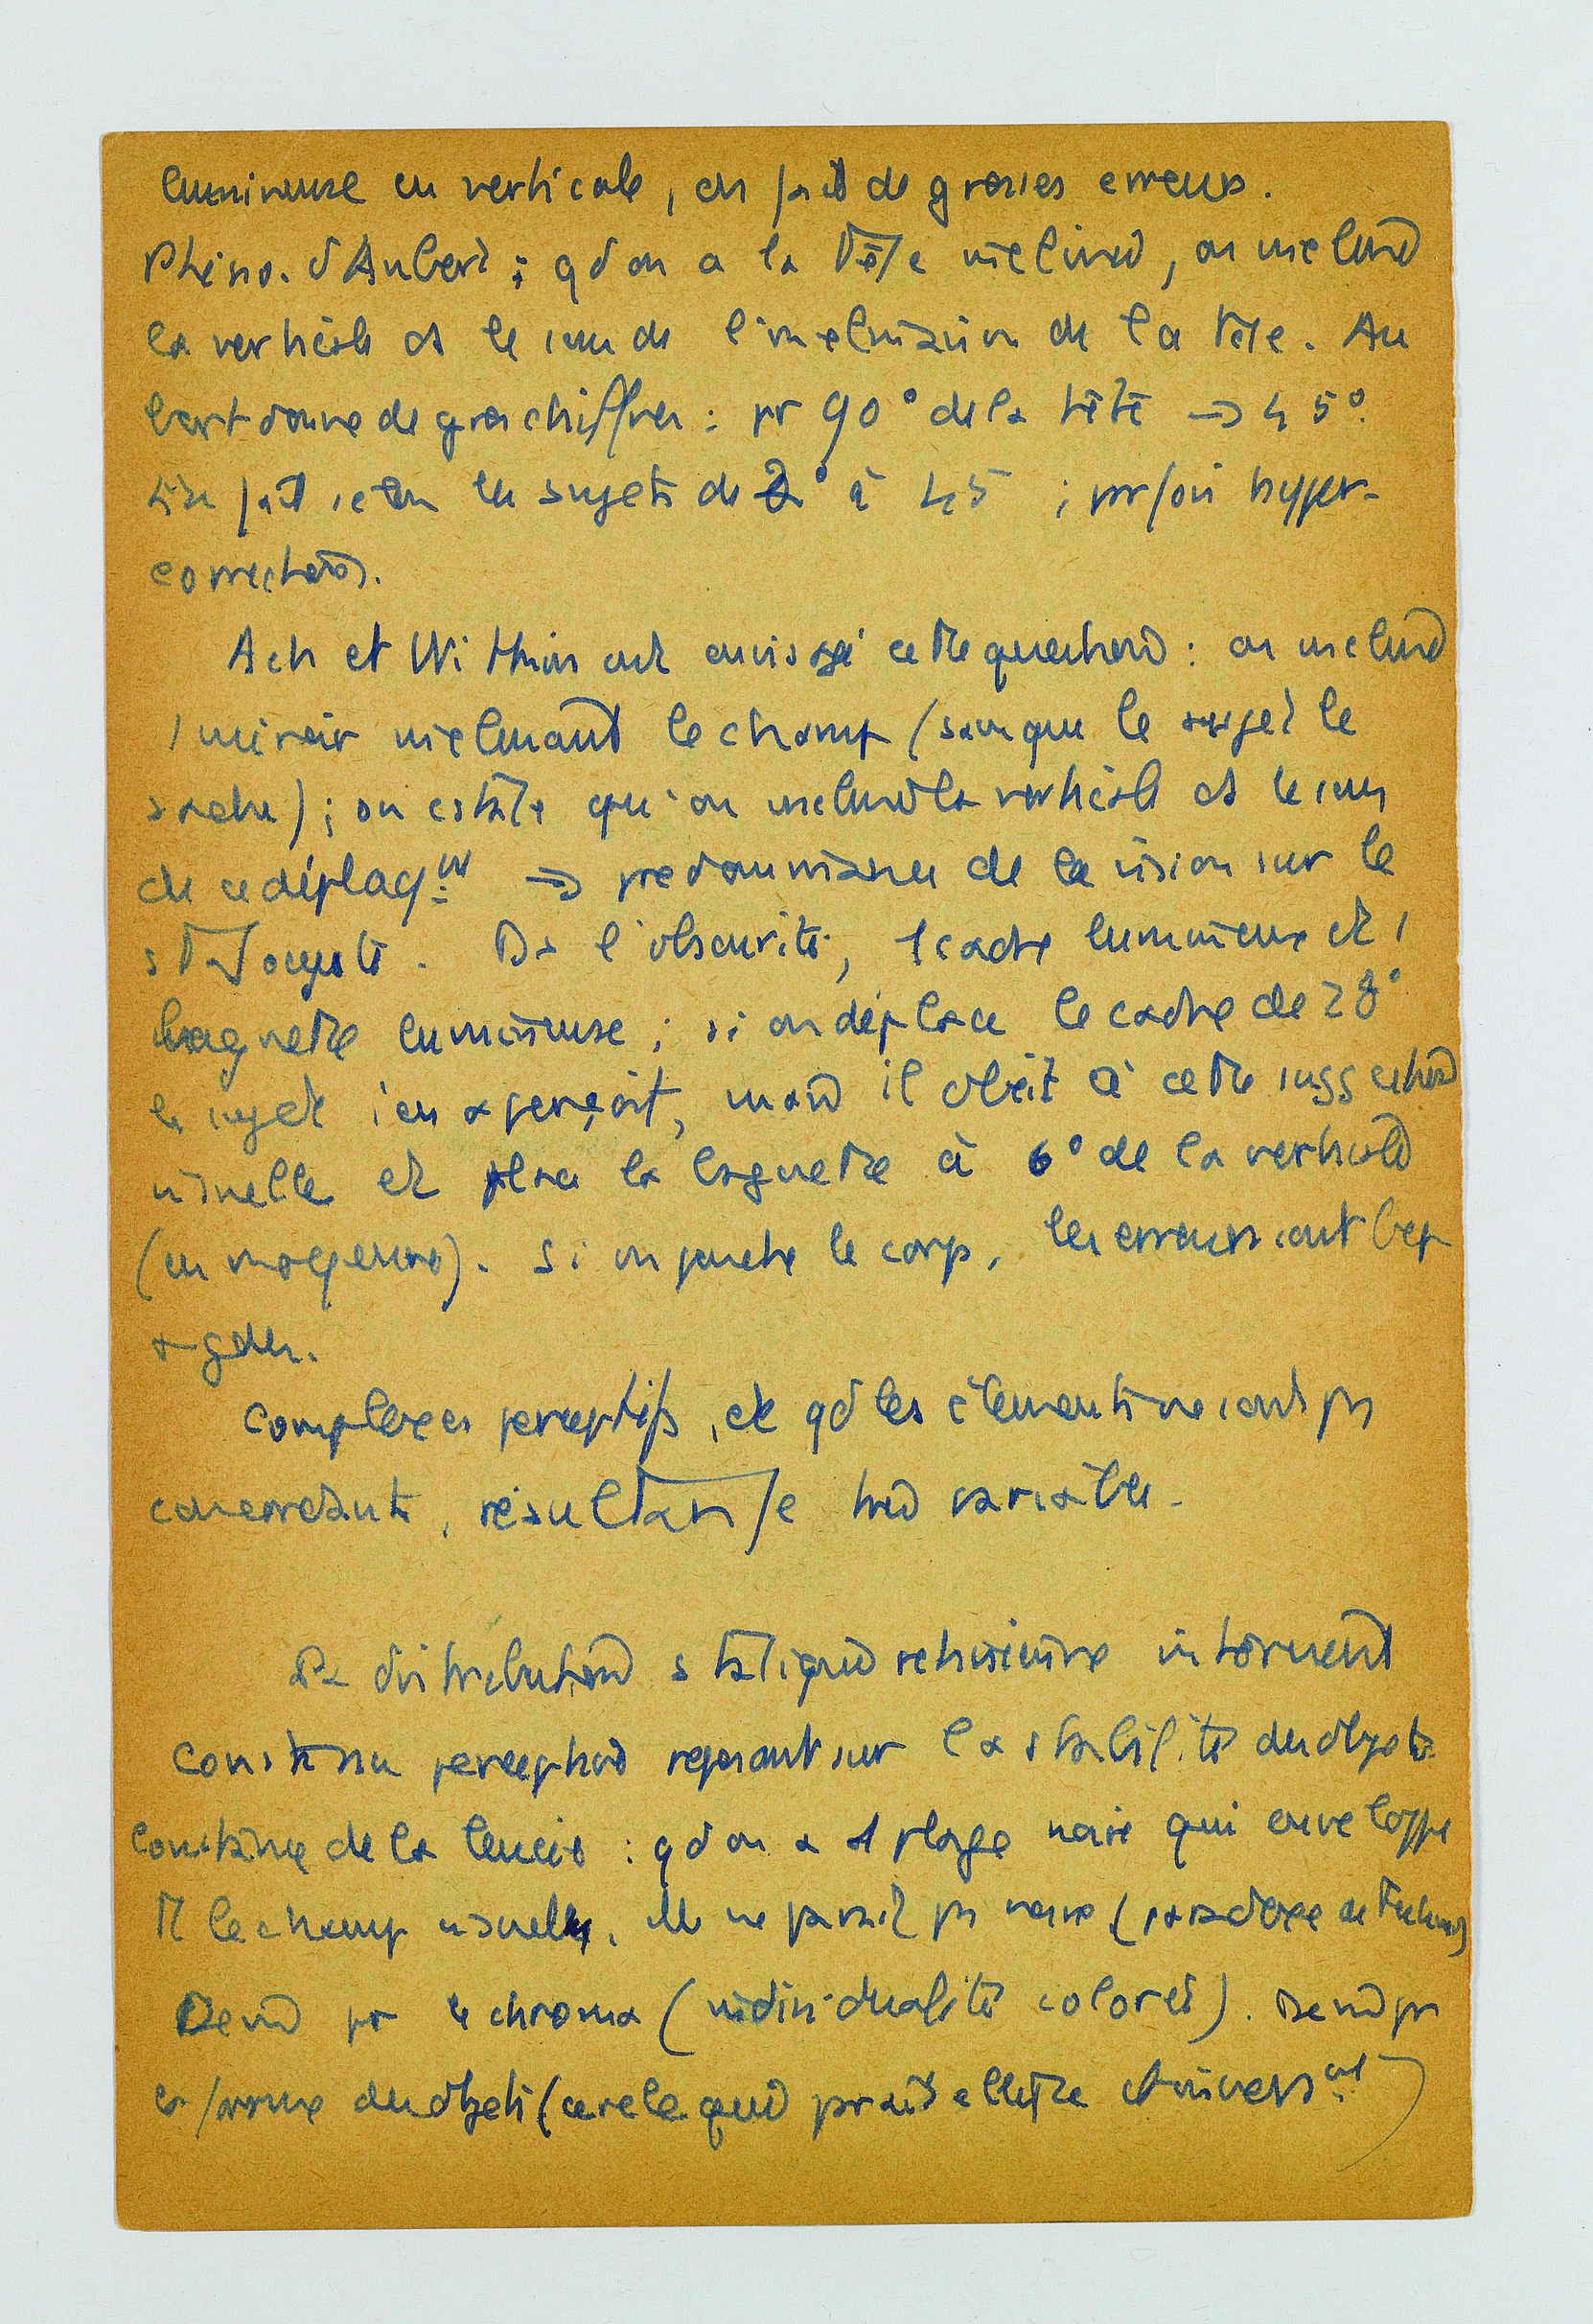 lumineuse en verticale, on fait de grosses erreurs.
Phéno. d'Aubert : qd on a la tête inclinée, on incline
la verticale ds le sens de l'inclinaison de la tête. Au
bert donne de gros chiffres : pr 90° de la tête → 45°.
fait selon les sujets de 2° à 45 ; prfois hyper-
correction.
Asch et Witkin ont envisagé cette question : on incline
1 miroir inclinant le champ (sans que le sujet le
sache) ; on cstate qu'on incline la verticale ds le sens
de ce déplaçmt → prédominance de la vision sur le
statocyste. Ds l'obscurité, 1 cadre lumineux et 1
baguette lumineuse ; si on déplace le cadre de 28°
le sujet s'en aperçoit, mais il obéit à cette suggestion
visuelle et place la baguette à 6° de la verticale
(en moyenne). Si on penche le corps, les erreurs sont bcp
+ gdes.
Complexes perceptifs, et qd les éléments ne sont ps
concordants, résultante très variable.
La distribution statique rétinienne intervient
Constance perceptive reposant sur la stabilité des objets
Constance de la : qd on a 1 plage noire qui enveloppe
tt le champ visuel, elle ne paraît ps noire (paradoxe de Fechner)
Idem pr le chroma (individualité colorée). Idem pr
la forme des objets (cercle qui paraît ellipse et inversmt)